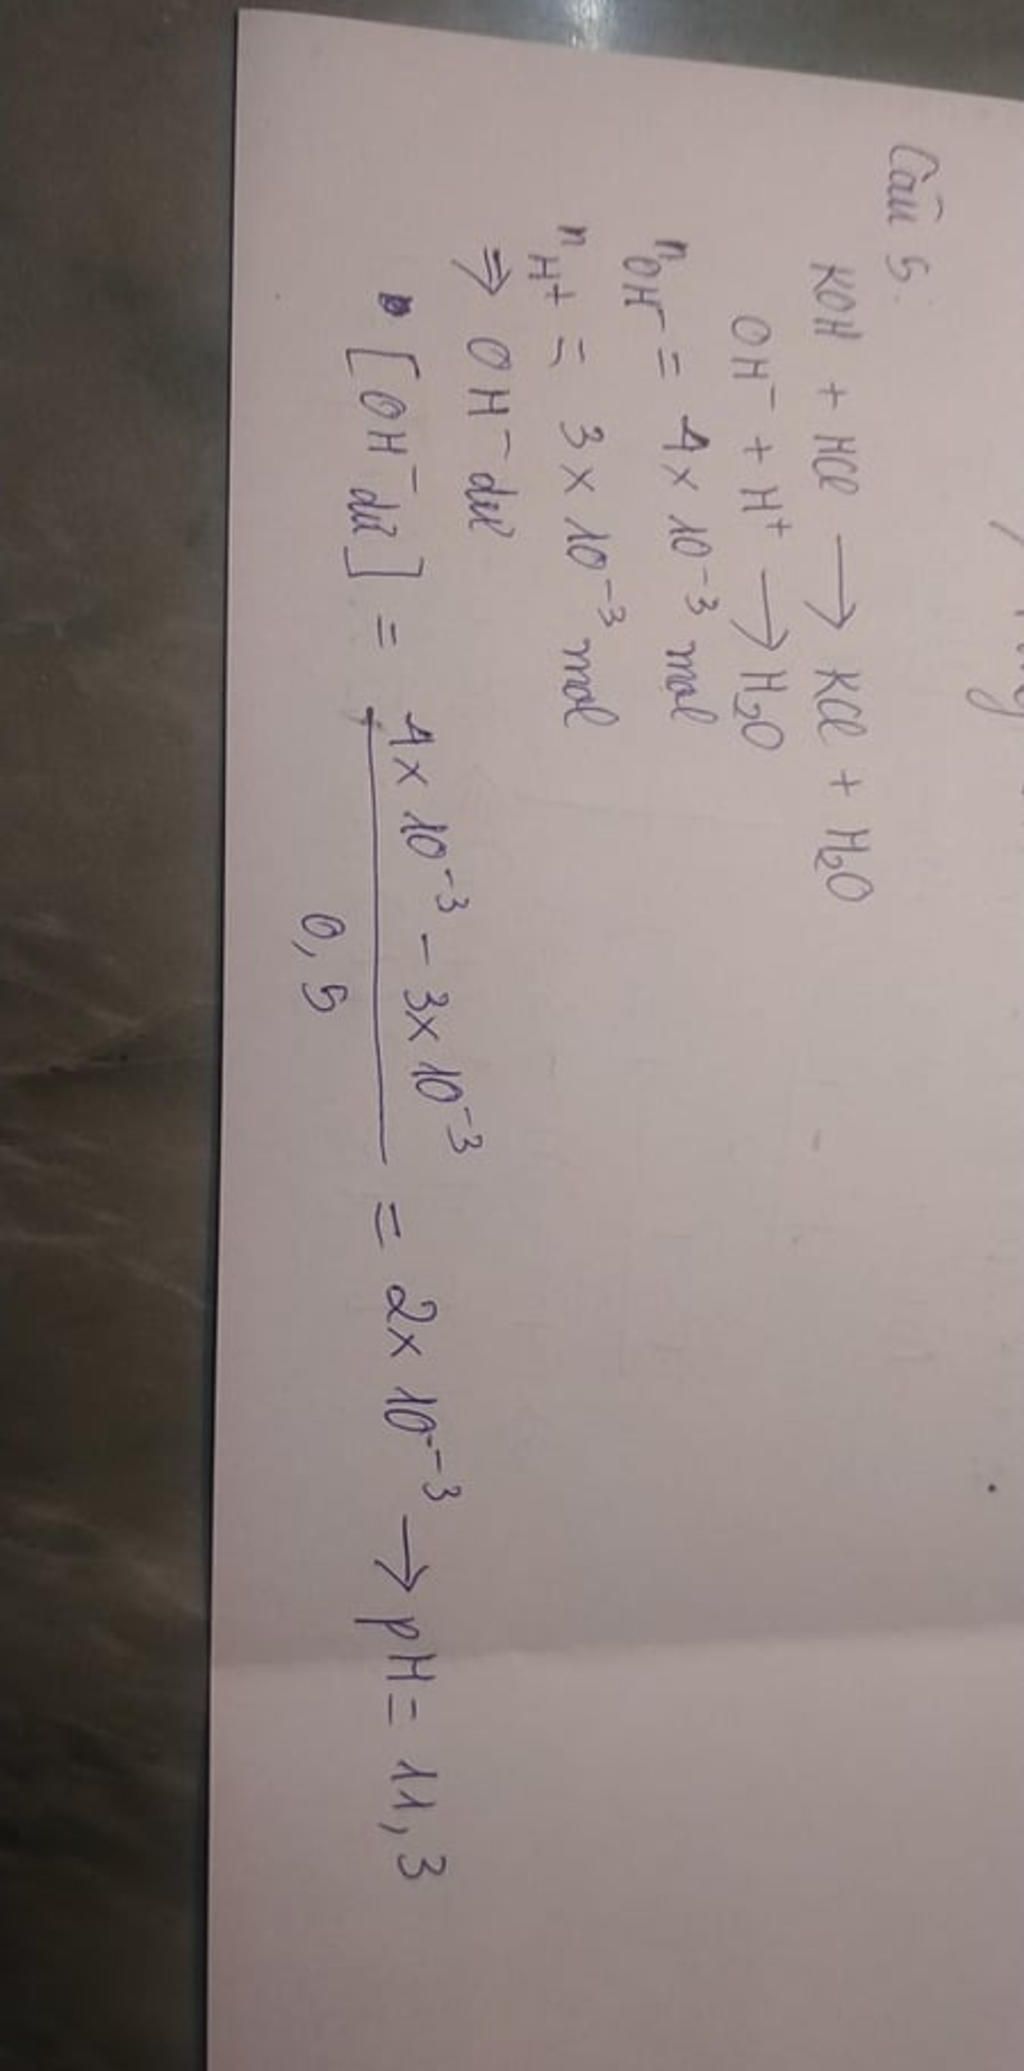 Câu 5.
KOH + HCl → KCl + H₂O
OH⁻ + H⁺ → H₂O
n OH⁻ = 4 x 10⁻³ mol
n H⁺ = 3 x 10⁻³ mol
⇒ OH⁻ dư
[OH⁻ dư] = 4 x 10⁻³ - 3 x 10⁻³ / 0,5 = 2 x 10⁻³ → pH = 11,3